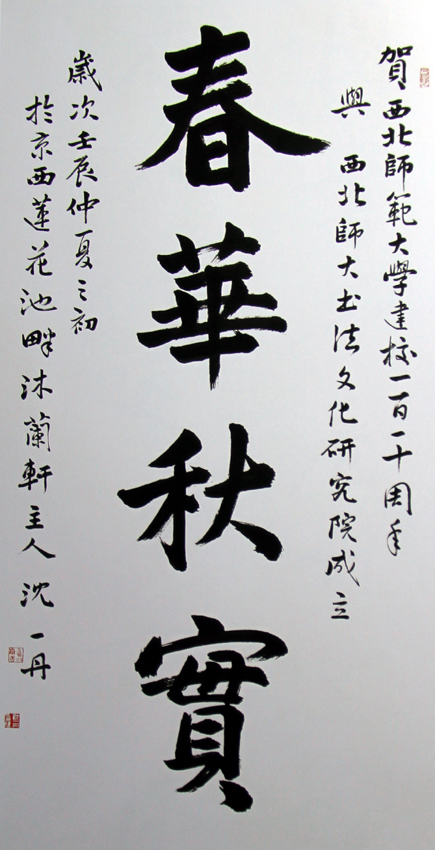 賀西北師範大學建校一百一十周年
與西北師大書法文化研究院成立
春華秋實
歲次壬辰仲夏之初
於京西蓮花池畔沐蘭軒主人沈一丹